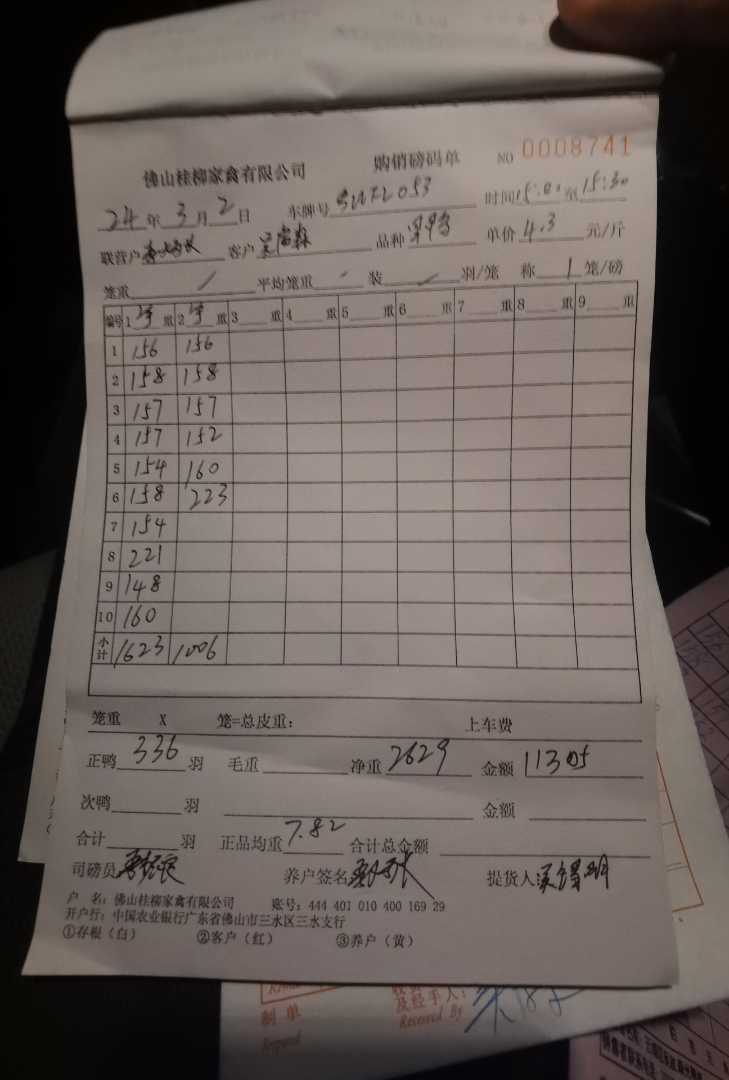 佛山桂柳家禽有限公司 购销磅码单 NO 0008741
24年3月2日 车牌号 053 时间15:00至15:30
联营户 客户 品种 单价4.3元/斤
笼重 / 平均笼重 装 羽/笼 称1笼/磅
编号 1 重 2 重 3 重 4 重 5 重 6 重 7 重 8 重 9 重
1 156 156
2 158 158
3 157 157
4 157 152
5 154 160
6 158 223
7 154
8 221
9 148
10 160
小计 1623 1006
笼重 X 笼=总皮重: 上车费
正鸭336羽 毛重 净重2629 金额11305
次鸭 羽 金额
合计 羽 正品均重7.82 合计总金额
司磅员 养户签名 提货人
户 名: 佛山桂柳家禽有限公司 账号: 444 401 010 400 169 29
开户行: 中国农业银行广东省佛山市三水区三水支行
①存根（白） ②客户（红） ③养户（黄）
制单
及经手人:
Received By